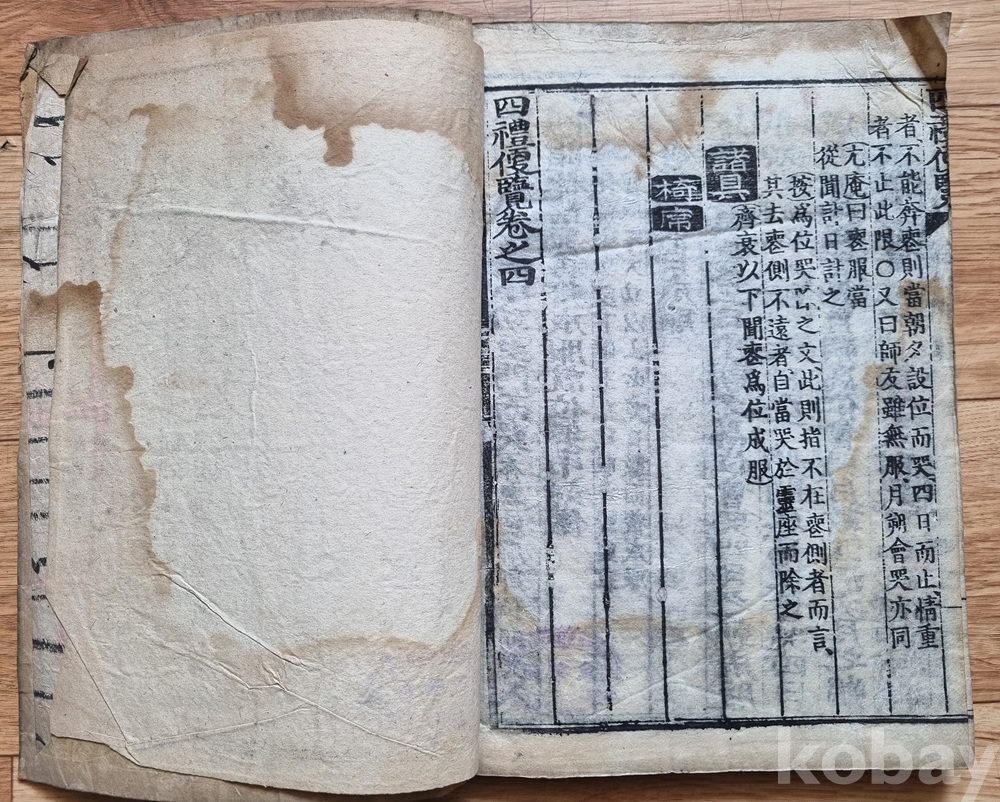 四禮便覽
者不能奔喪則當朝夕設位而哭四日而止情重
者不止此限○又曰師友雖無服月朔會哭亦同
尤庵曰喪服當
從聞訃日計之
按爲位哭之文此則指不在喪側者而言
其去喪側不遠者自當哭於靈座而除之
諸具 齊衰以下聞喪爲位成服
椅席
四禮便覽卷之四
kobay